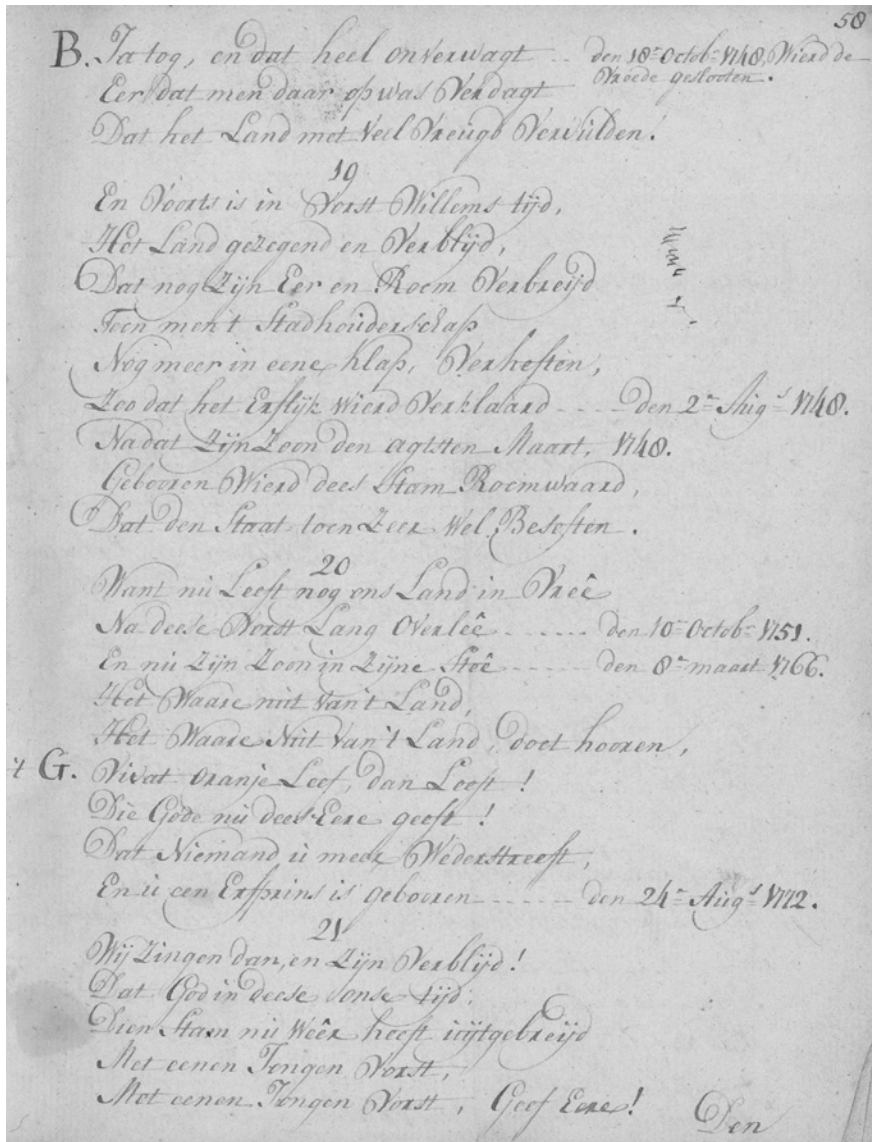 58
B. Ja tog, en dat heel onverwagt -- den 18e Octobr 1748, Wierd de
Vreede geslooten.
Eer dat men daar op was Verdagt
Dat het Land met Veel Vreugd Vervulden!
19
En Voorts is in Vorst Willems tijd,
Het Land gezegend en Verblijd,
Dat nog Zijn Eer en Roem Verbreijd
Toen men 't Stadhouderschap
Nog meer in eene klap, Verheften,
Zoo dat het Erflijk Wierd Verklaard ---- den 2e Augs 1748.
Nadat Zijn Zoon den agtsten Maart, 1748.
Gebooren Wierd dees Stam Roemwaard,
Dat den Staat toen Zeer Wel Beseften.
20
Want nu Leeft nog ons Land in Vreê
Na deese Vorst Lang Overleê ------ den 10e Octobr 1751.
En nu Zijn Zoon in Zijne Steê ----- den 8e maart 1766.
Het Waare nut Van't Land,
Het Waare Nut Van't Land, doet hooren,
't G. Vivat Oranje Leef, dan Leeft!
Die Gode nu dees Eere geeft!
Dat Niemand u meer Wederstreeft,
En u een Erfprins is gebooren ----- den 24e Augs 1772.
21
Wij Zingen dan, en Zijn Verblijd!
Dat God in deese onse tijd,
Dien Stam nu Weêr heeft uijtgebreijd
Met eenen Jongen Vorst,
Met eenen Jongen Vorst, Geef Eere!
Den